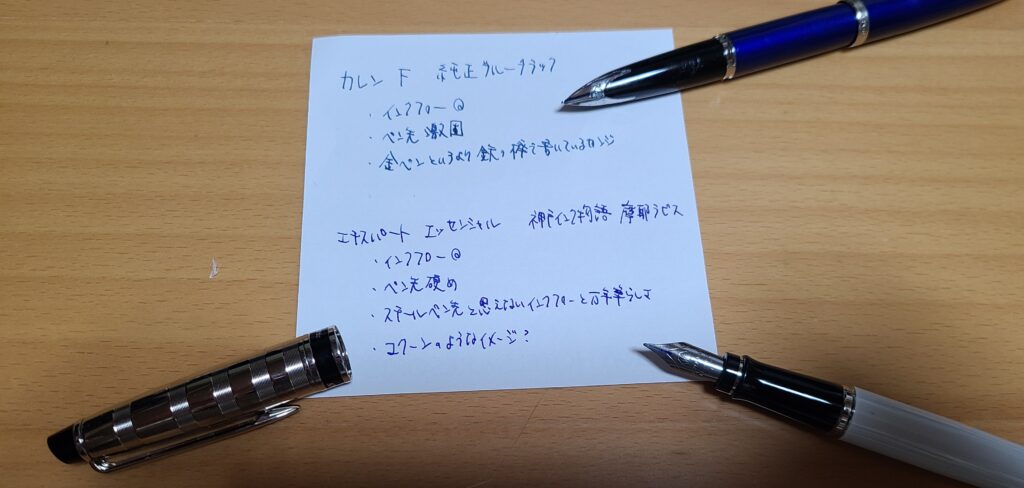 カレン F 純正ブルーブラック
・インクフロー◎
・ペン先 激固
・金ペンというより鉄の棒で書いているカンジ
エキスパート エッセンシャル 神戸インク物語 摩耶ラピス
・インクフロー◎
・ペン先硬め
・スチールペン先と思えないインクフローと万年筆らしさ
・コクーンのようなイメージ?